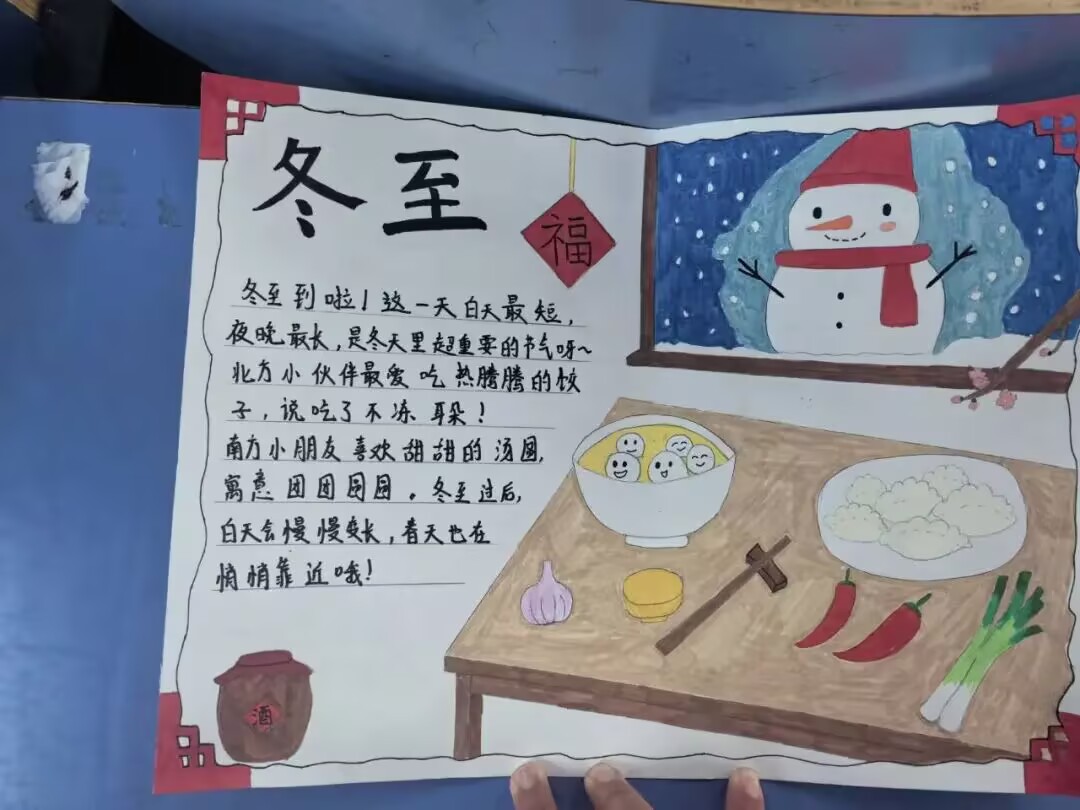 冬至
福
冬至到啦！这一天白天最短，
夜晚最长，是冬天里超重要的节气呀~
北方小伙伴最爱吃热腾腾的饺
子，说吃了不冻耳朵！
南方小朋友喜欢甜甜的汤圆，
寓意团团圆圆。冬至过后，
白天会慢慢变长，春天也在
悄悄靠近哦！
酒